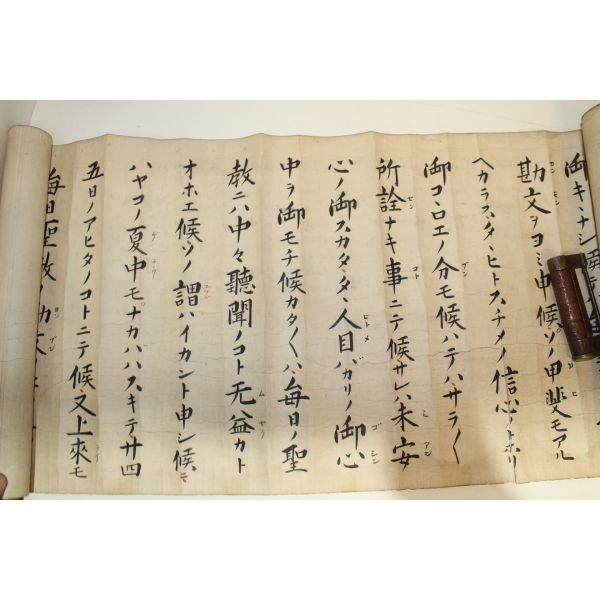 御キヽナシ候テ
勘文ヲヨミ申候ソノ甲斐モアル
ヘカラスタヽヒトスチメノ信心ノトホリ
御コヽロエノ分モ候ハテハサラ〳〵
所詮ナキ事ニテ候サレハ未安
心ノ御スカタタヽ人目バカリノ御心
中ヲ御モチ候カタ〳〵ハ毎日ノ聖
教ニハ中々聽聞ノコト无益カト
オホエ候ソノ謂ハイカント申シ候ニ
ハヤコノ夏中モナカバハスキテ廿四
五日ノアヒタノコトニテ候又上來モ
毎日聖教ノ勘文